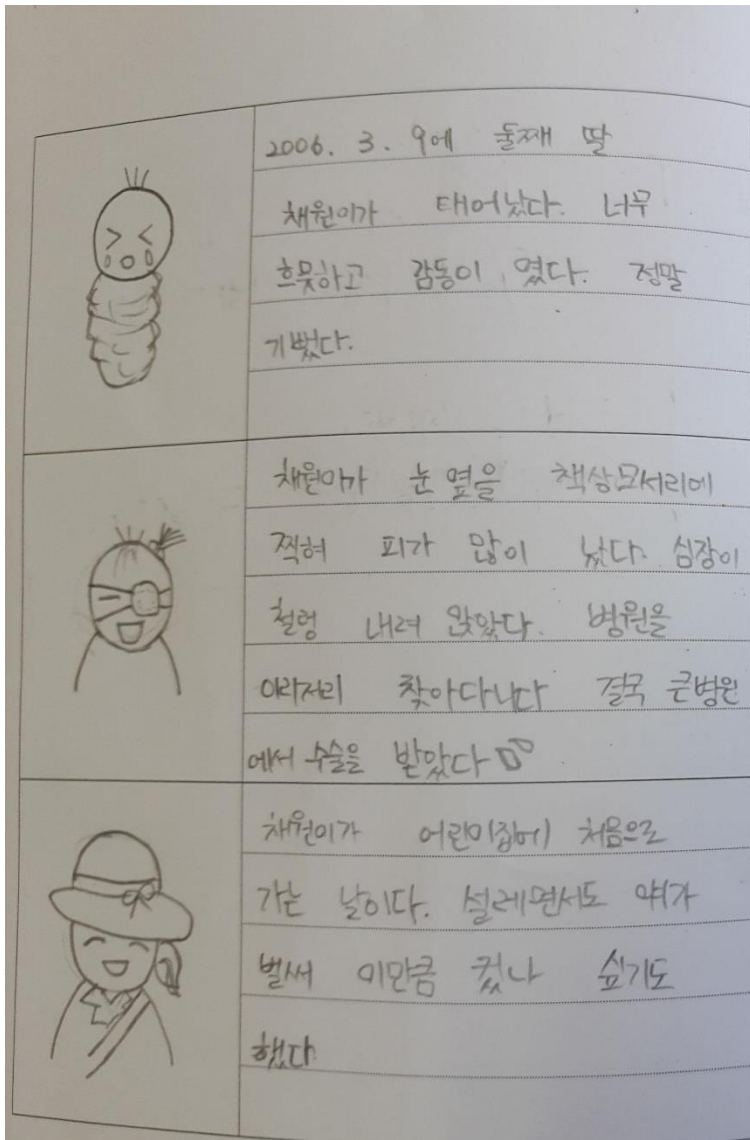 2006. 3. 9에 둘째 딸
채원이가 태어났다. 너무
흐뭇하고 감동이 였다. 정말
기뻤다.
채원이가 눈 옆을 책상모서리에
찍혀 피가 많이 났다. 심장이
철렁 내려 앉았다. 병원을
이리저리 찾아다니다 결국 큰병원
에서 수술을 받았다
채원이가 어린이집에 처음으로
가는 날이다. 설레면서도 얘가
벌써 이만큼 컸나 싶기도
했다